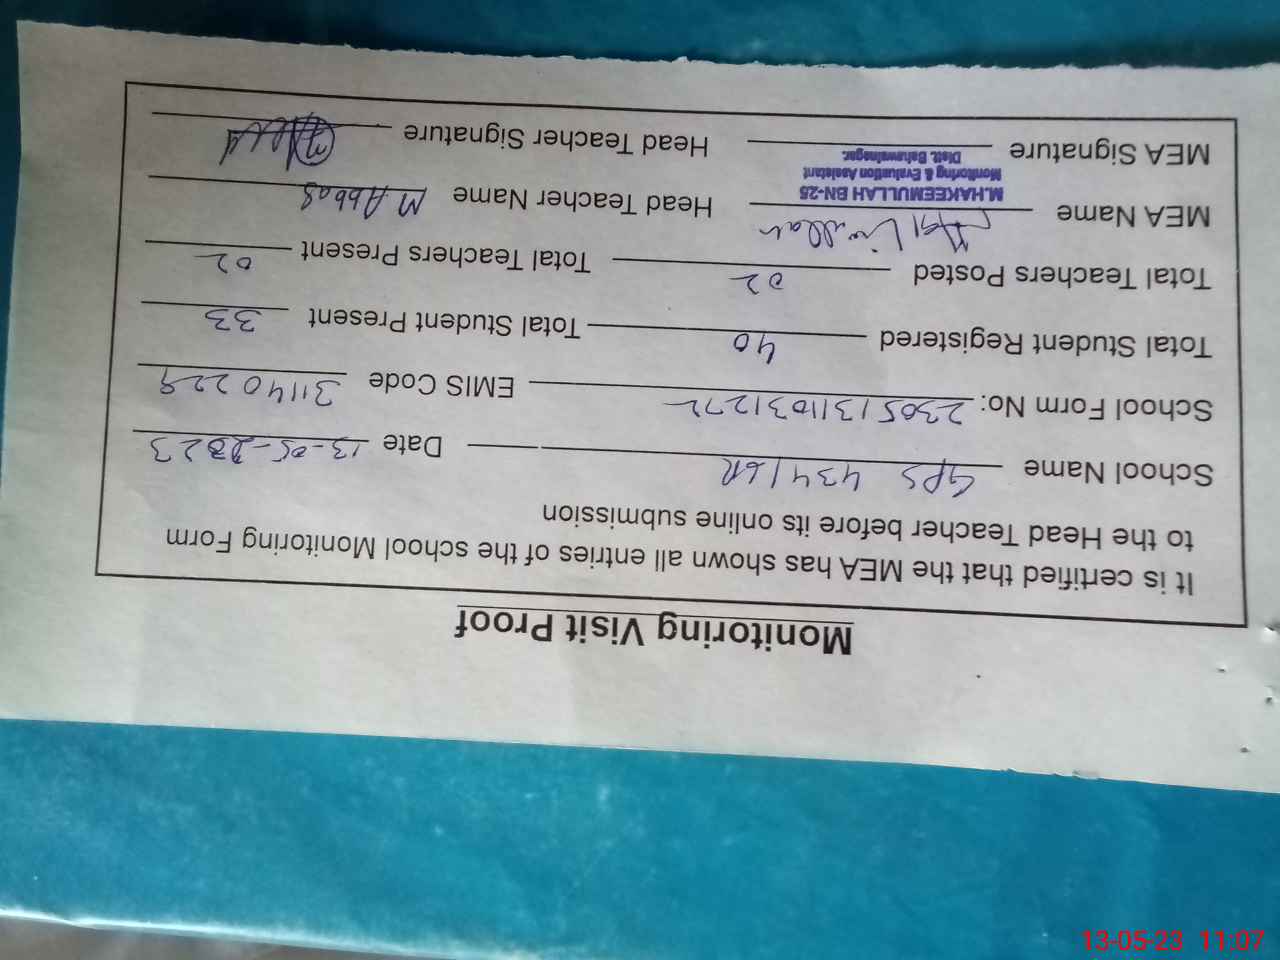 Monitoring Visit Proof
It is certified that the MEA has shown all entries of the school Monitoring Form
to the Head Teacher before its online submission
School Name GPS 434/6R Date 13-05-2023
School Form No: 23051311031272 EMIS Code 31140229
Total Student Registered 40 Total Student Present 33
Total Teachers Posted 02 Total Teachers Present 02
MEA Name Head Teacher Name M.Abbas
M.HAKEEMULLAH BN-25
Monitoring & Evaluation Assistant
Distt. Bahawalnagar.
MEA Signature Head Teacher Signature
13-05-23 11:07